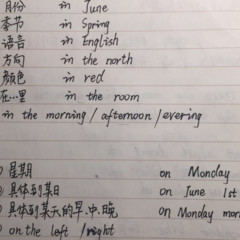 月份 in June
季节 in Spring
语音 in English
方向 in the north
颜色 in red
在…里 in the room
in the morning / afternoon / evering
星期 on Monday
具体到某日 on June 1st
具体到某天的早.中.晚 on Monday mor
on the left / right